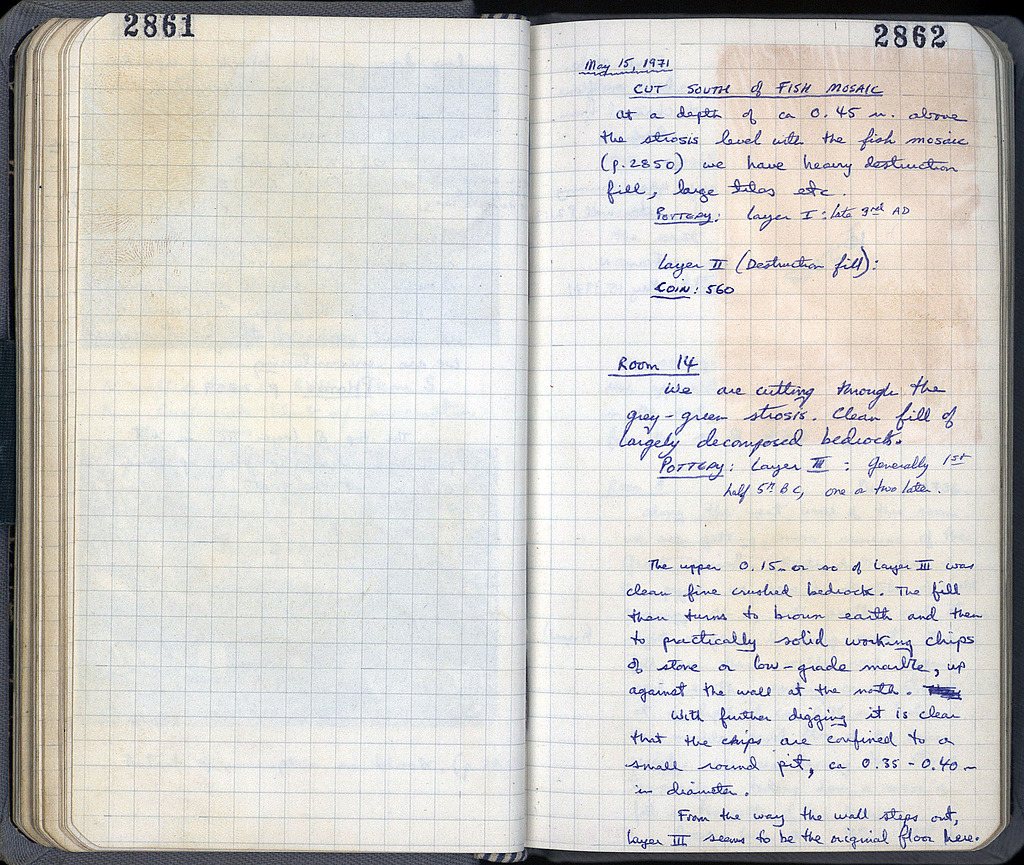 2861
2862
May 15, 1971
CUT SOUTH of FISH MOSAIC
at a depth of ca 0.45 m. above
the strosis level with the fish mosaic
(p.2850) we have heavy destruction
fill, large tiles etc.
POTTERY: Layer I: late 3rd AD
Layer II (Destruction fill):
COIN: 560
Room 14
We are cutting through the
grey-green strosis. Clean fill of
largely decomposed bedrock.
POTTERY: Layer III: Generally 1st
half 5th BC, one or two later.
The upper 0.15m or so of Layer III was
clean fine crushed bedrock. The fill
then turns to brown earth and then
to practically solid working chips
of stone or low-grade marble, up
against the wall at the north.
With further digging it is clear
that the chips are confined to a
small round pit, ca 0.35-0.40m
in diameter.
From the way the wall steps out,
layer III seems to be the original floor here.